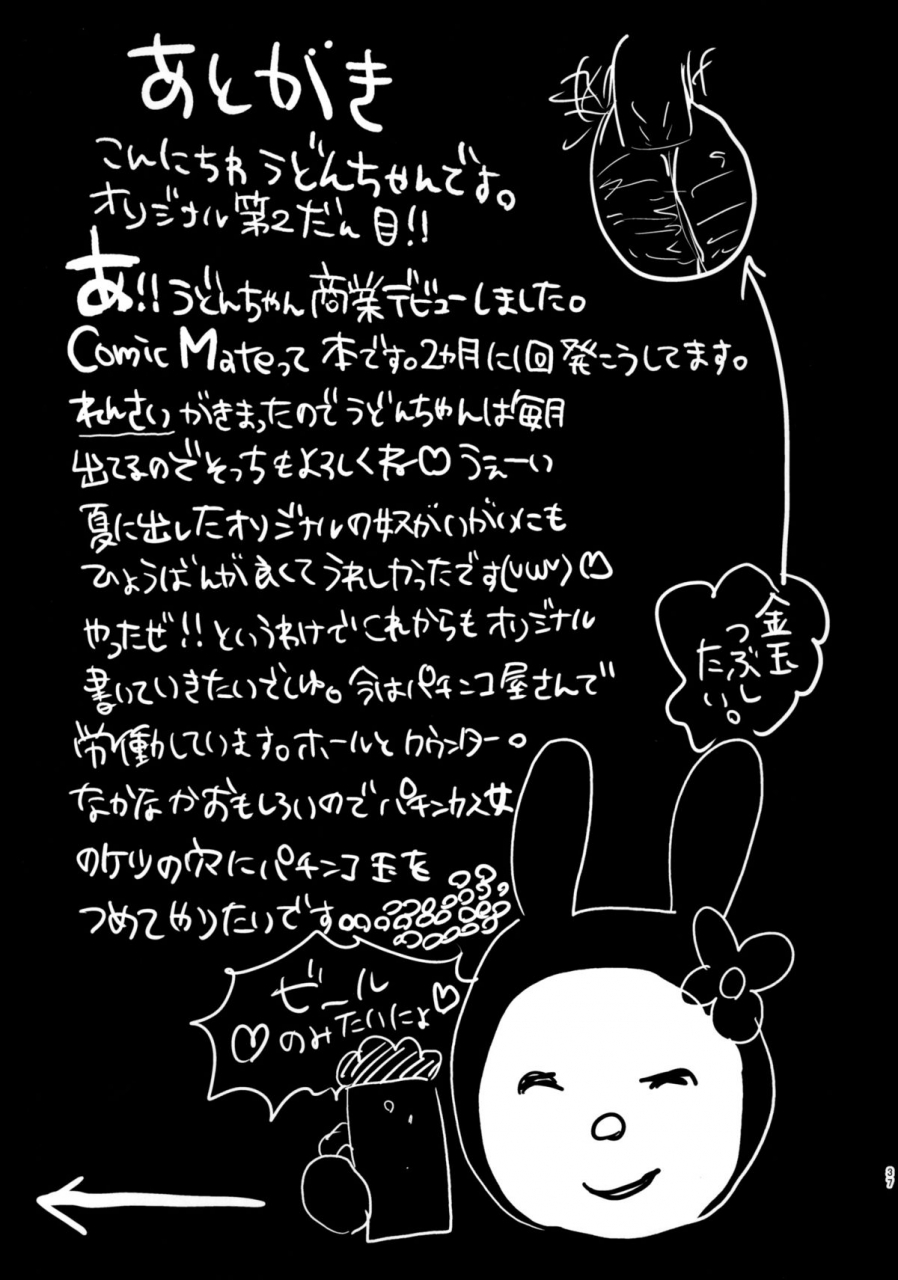 あとがき
こんにちわ うどんちゃんです。
オリジナル第2だん目!!
あ!!うどんちゃん商業デビューしました。
Comic Mateって本です。2カ月に1回発こうしてます。
れんさいがきまったのでうどんちゃんは毎月
出てるのでそっちもよろしくねー♡うぇーい
夏に出したオリジナルの奴がいがいにも
ひょうばんが良くてうれしかったです(νων)♡
やったぜ!!というわけでこれからもオリジナル
書いていきたいでしゅ。今はパチンコ屋さんで
労働しています。ホールとカウンター。
なかなかおもしろいのでパチンカス女
のケツの穴にパチンコ玉を
つめてやりたいです。
金玉
つぶし
たい。
ビール
♡のみたいにょ♡
37